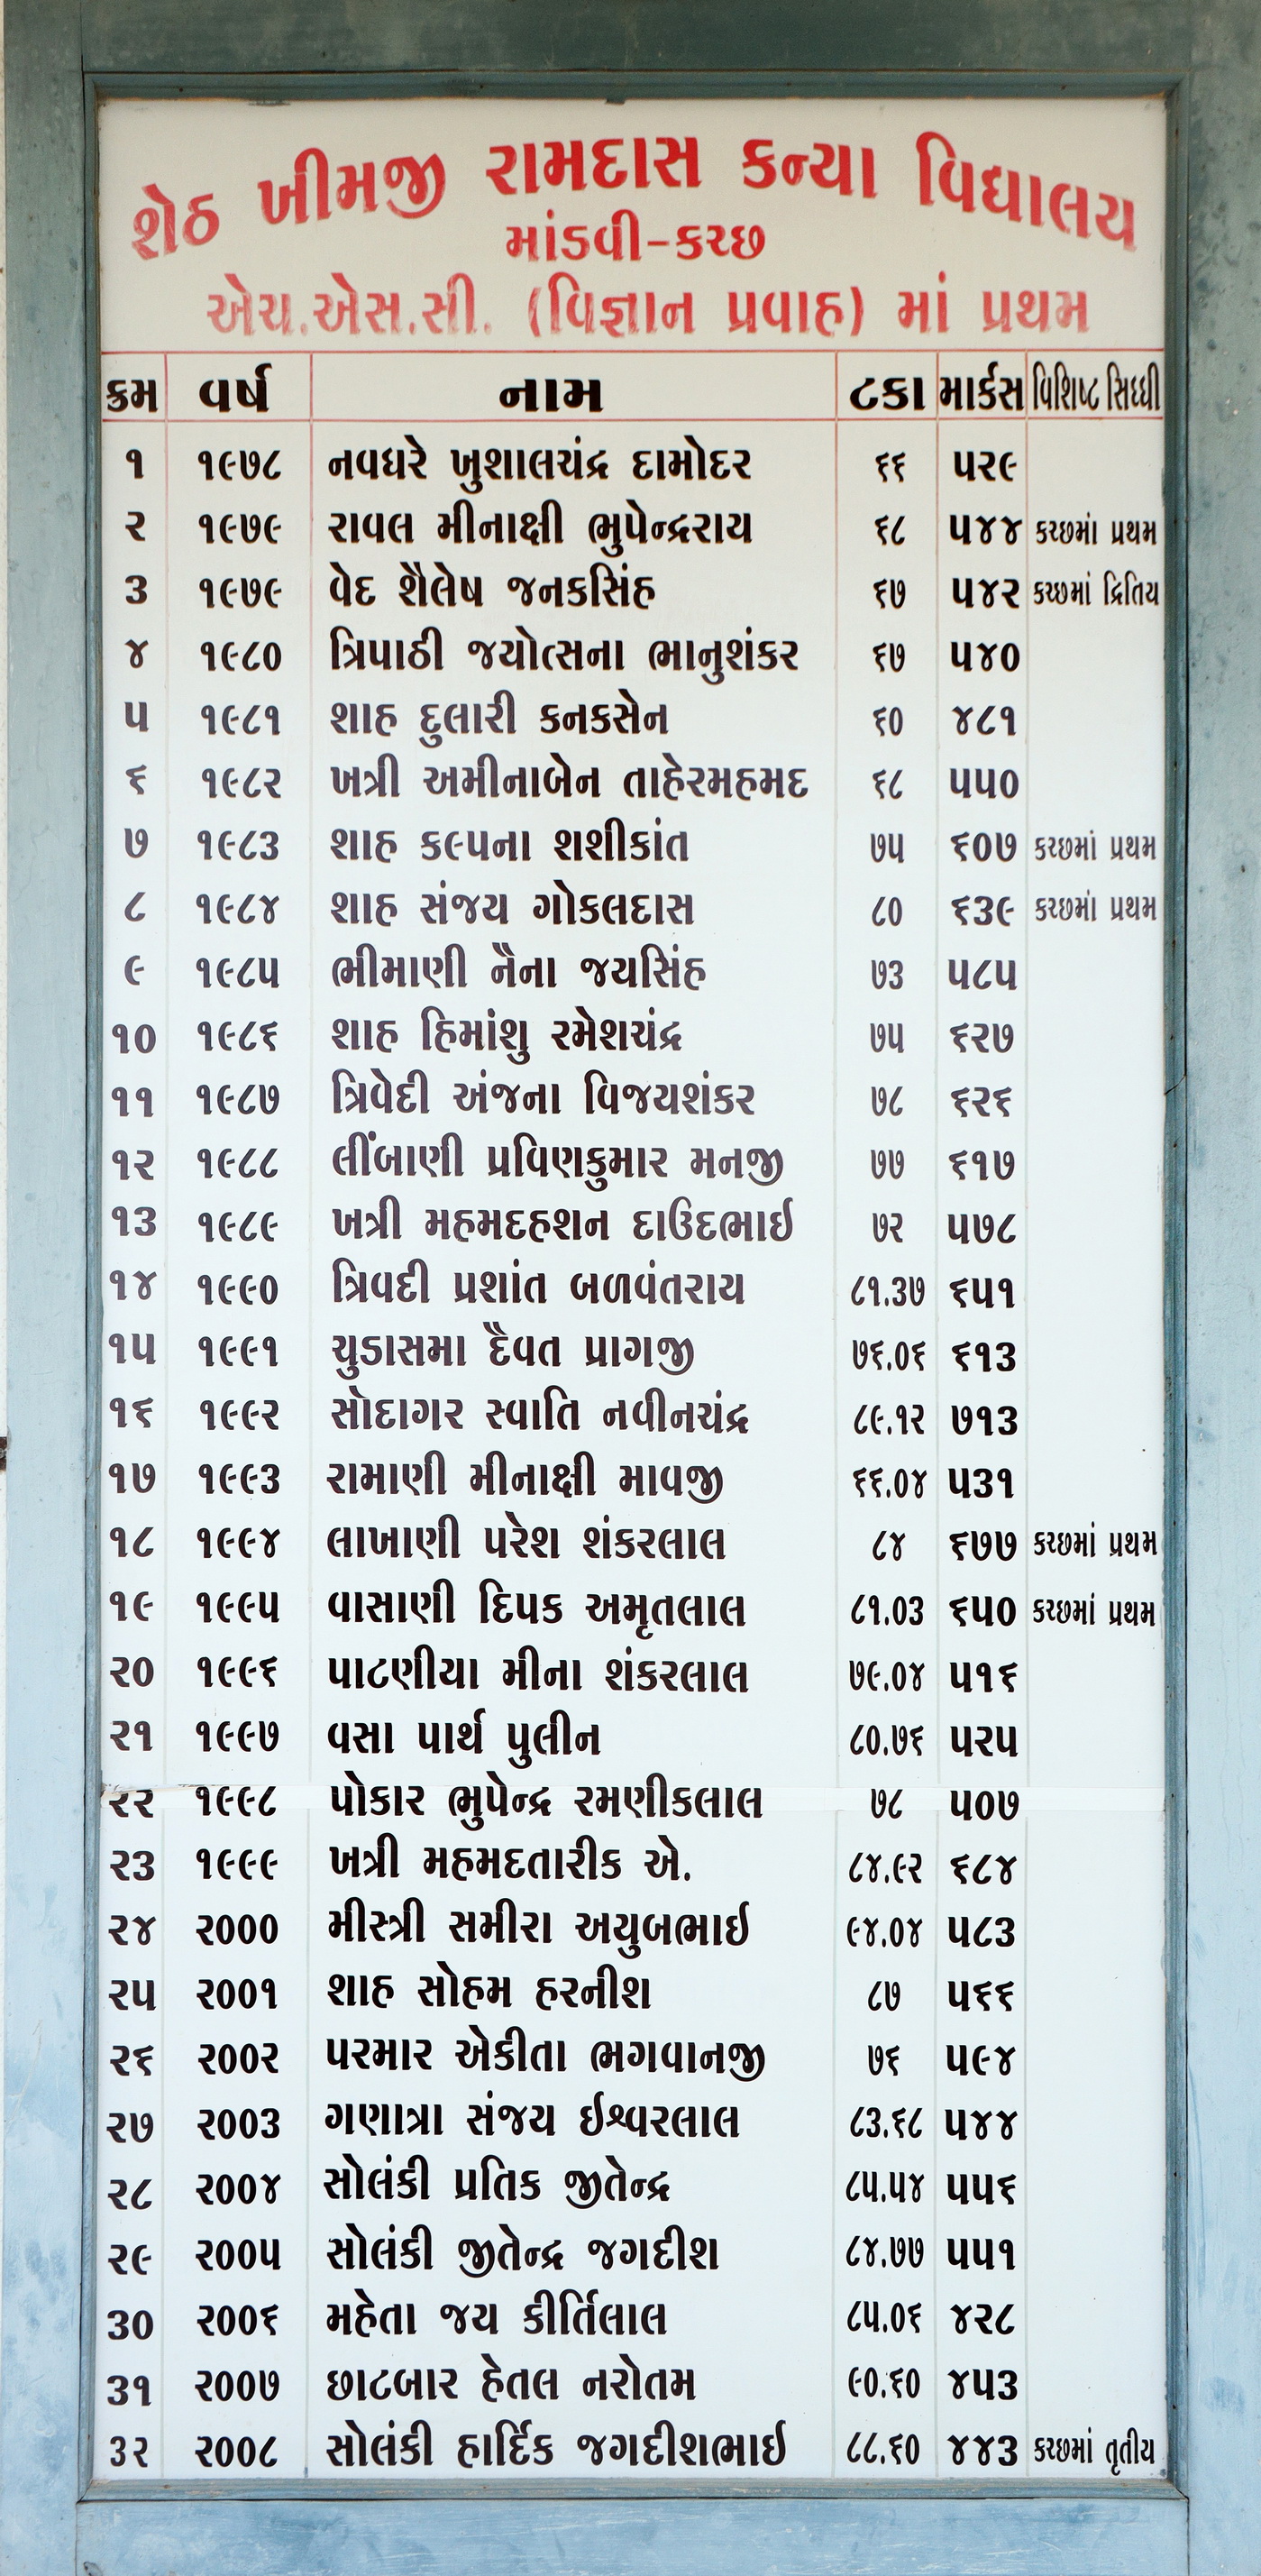 શેઠ ખીમજી રામદાસ કન્યા વિદ્યાલય
માંડવી-કચ્છ
એચ.એસ.સી. (વિજ્ઞાન પ્રવાહ) માં પ્રથમ
ક્રમ વર્ષ નામ ટકા માર્કસ વિશિષ્ટ સિધ્ધી
૧ ૧૯૭૮ નવધરે ખુશાલચંદ્ર દામોદર ૬૬ ૫૨૯
૨ ૧૯૭૯ રાવલ મીનાક્ષી ભુપેન્દ્રરાય ૬૮ ૫૪૪ કચ્છમાં પ્રથમ
૩ ૧૯૭૯ વેદ શૈલેષ જનકસિંહ ૬૭ ૫૪૨ કચ્છમાં દ્રિતિય
૪ ૧૯૮૦ ત્રિપાઠી જયોત્સના ભાનુશંકર ૬૭ ૫૪૦
૫ ૧૯૮૧ શાહ દુલારી કનકસેન ૬૦ ૪૮૧
૬ ૧૯૮૨ ખત્રી અમીનાબેન તાહેરમહમદ ૬૮ ૫૫૦
૭ ૧૯૮૩ શાહ કલ્પના શશીકાંત ૭૫ ૬૦૭ કચ્છમાં પ્રથમ
૮ ૧૯૮૪ શાહ સંજય ગોકલદાસ ૮૦ ૬૩૯ કચ્છમાં પ્રથમ
૯ ૧૯૮૫ ભીમાણી નૈના જયસિંહ ૭૩ ૫૮૫
૧૦ ૧૯૮૬ શાહ હિમાંશુ રમેશચંદ્ર ૭૫ ૬૨૭
૧૧ ૧૯૮૭ ત્રિવેદી અંજના વિજયશંકર ૭૮ ૬૨૬
૧૨ ૧૯૮૮ લીંબાણી પ્રવિણકુમાર મનજી ૭૭ ૬૧૭
૧૩ ૧૯૮૯ ખત્રી મહમદહશન દાઉદભાઈ ૭૨ ૫૭૮
૧૪ ૧૯૯૦ ત્રિવદી પ્રશાંત બળવંતરાય ૮૧.૩૭ ૬૫૧
૧૫ ૧૯૯૧ ચુડાસમા દૈવત પ્રાગજી ૭૬.૦૬ ૬૧૩
૧૬ ૧૯૯૨ સોદાગર સ્વાતિ નવીનચંદ્ર ૮૯.૧૨ ૭૧૩
૧૭ ૧૯૯૩ રામાણી મીનાક્ષી માવજી ૬૬.૦૪ ૫૩૧
૧૮ ૧૯૯૪ લાખાણી પરેશ શંકરલાલ ૮૪ ૬૭૭ કચ્છમાં પ્રથમ
૧૯ ૧૯૯૫ વાસાણી દિપક અમૃતલાલ ૮૧.૦૩ ૬૫૦ કચ્છમાં પ્રથમ
૨૦ ૧૯૯૬ પાટણીયા મીના શંકરલાલ ૭૯.૦૪ ૫૧૬
૨૧ ૧૯૯૭ વસા પાર્થ પુલીન ૮૦.૭૬ ૫૨૫
૨૨ ૧૯૯૮ પોકાર ભુપેન્દ્ર રમણીકલાલ ૭૮ ૫૦૭
૨૩ ૧૯૯૯ ખત્રી મહમદતારીક એ. ૮૪.૯૨ ૬૮૪
૨૪ ૨૦૦૦ મીસ્ત્રી સમીરા અયુબભાઈ ૯૪.૦૪ ૫૮૩
૨૫ ૨૦૦૧ શાહ સોહમ હરનીશ ૮૭ ૫૬૬
૨૬ ૨૦૦૨ પરમાર એકીતા ભગવાનજી ૭૬ ૫૯૪
૨૭ ૨૦૦૩ ગણાત્રા સંજય ઈશ્વરલાલ ૮૩.૬૮ ૫૪૪
૨૮ ૨૦૦૪ સોલંકી પ્રતિક જીતેન્દ્ર ૮૫.૫૪ ૫૫૬
૨૯ ૨૦૦૫ સોલંકી જીતેન્દ્ર જગદીશ ૮૪.૭૭ ૫૫૧
૩૦ ૨૦૦૬ મહેતા જય કીર્તિલાલ ૮૫.૦૬ ૪૨૮
૩૧ ૨૦૦૭ છાટબાર હેતલ નરોતમ ૯૦.૬૦ ૪૫૩
૩૨ ૨૦૦૮ સોલંકી હાર્દિક જગદીશભાઈ ૮૮.૬૦ ૪૪૩ કચ્છમાં તૃતીય